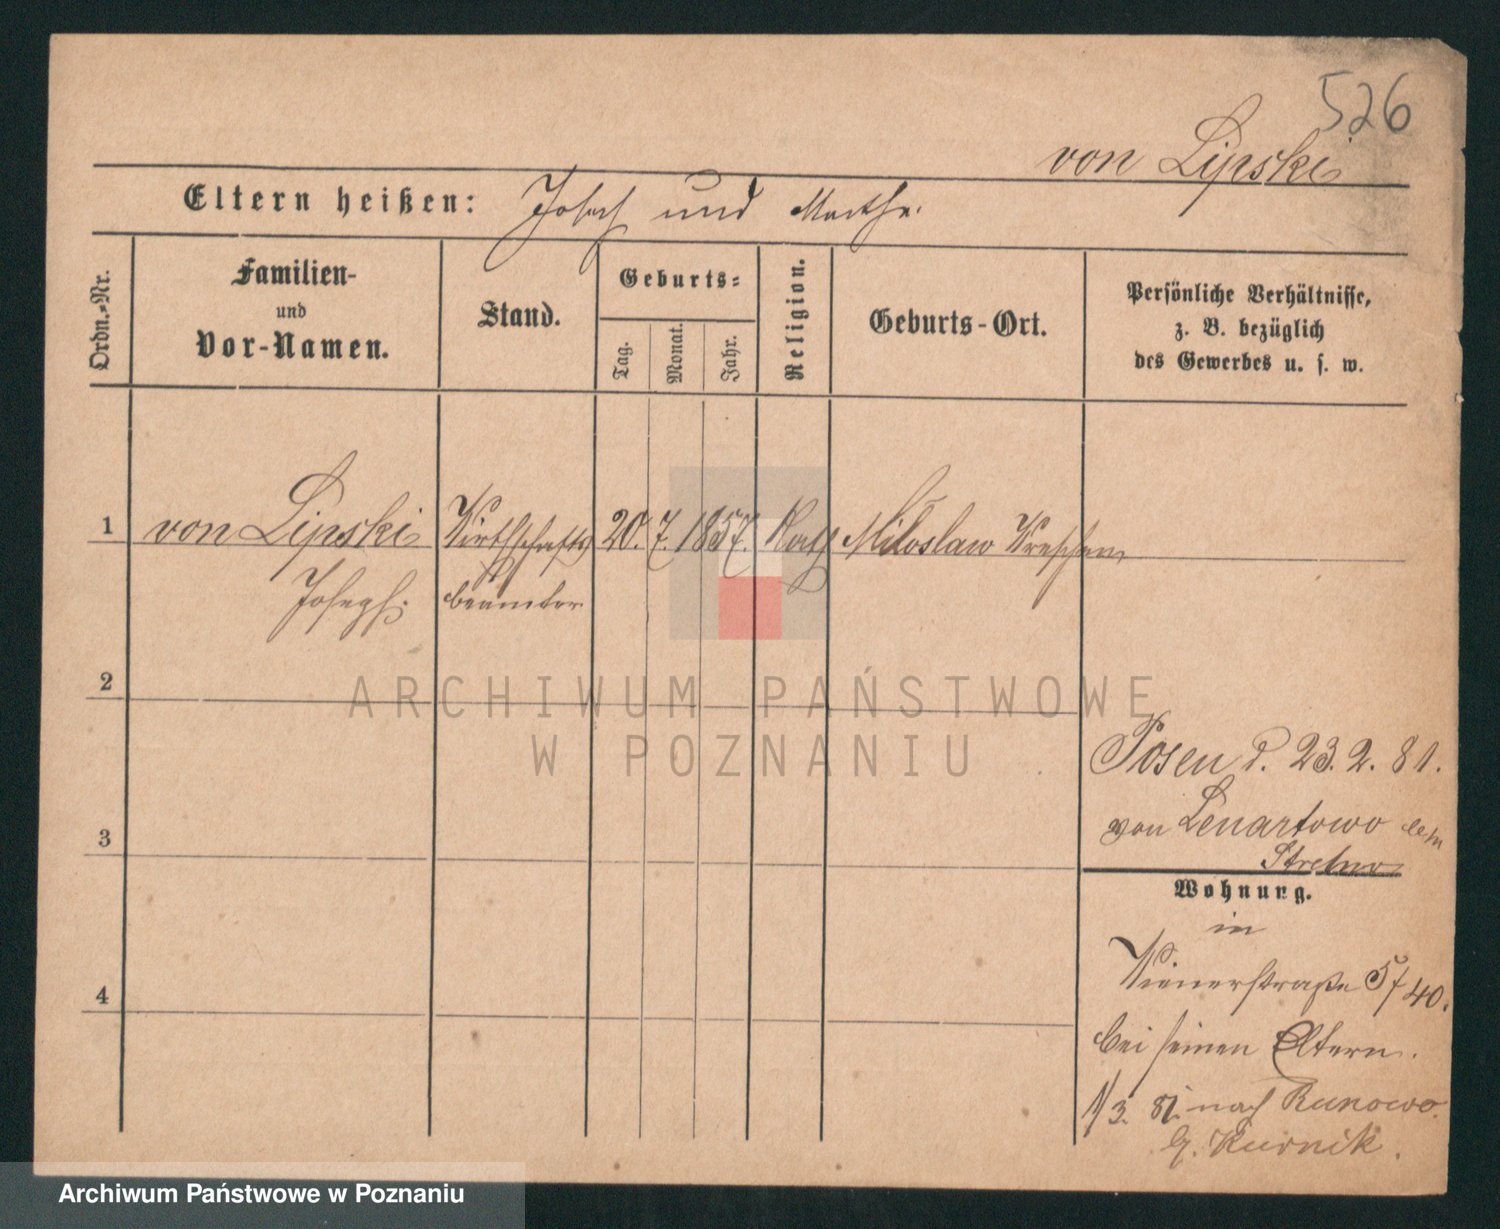 526
von Lipski
Eltern heißen: Joseph und Marthe.
Ordn.-Nr.
Familien-
und
Vor-Namen.
Stand.
Geburts-
Tag.
Monat.
Jahr.
Religion.
Geburts-Ort.
Persönliche Verhältnisse,
z. B. bezüglich
des Gewerbes u. s. w.
1 von Lipski Wirthschafts 20. 7. 1857. Kath Miloslaw Wreschen
Joseph. beamter
2
ARCHIWUM PAŃSTWOWE
W POZNANIU
Posen d. 23.2.81.
3
von Lenartowo
Strelno
Wohnung.
in
4
Wienerstraße 5/40.
bei seinen Eltern.
1/3. 81. nach Runowo.
b/. Kurnik.
Archiwum Państwowe w Poznaniu